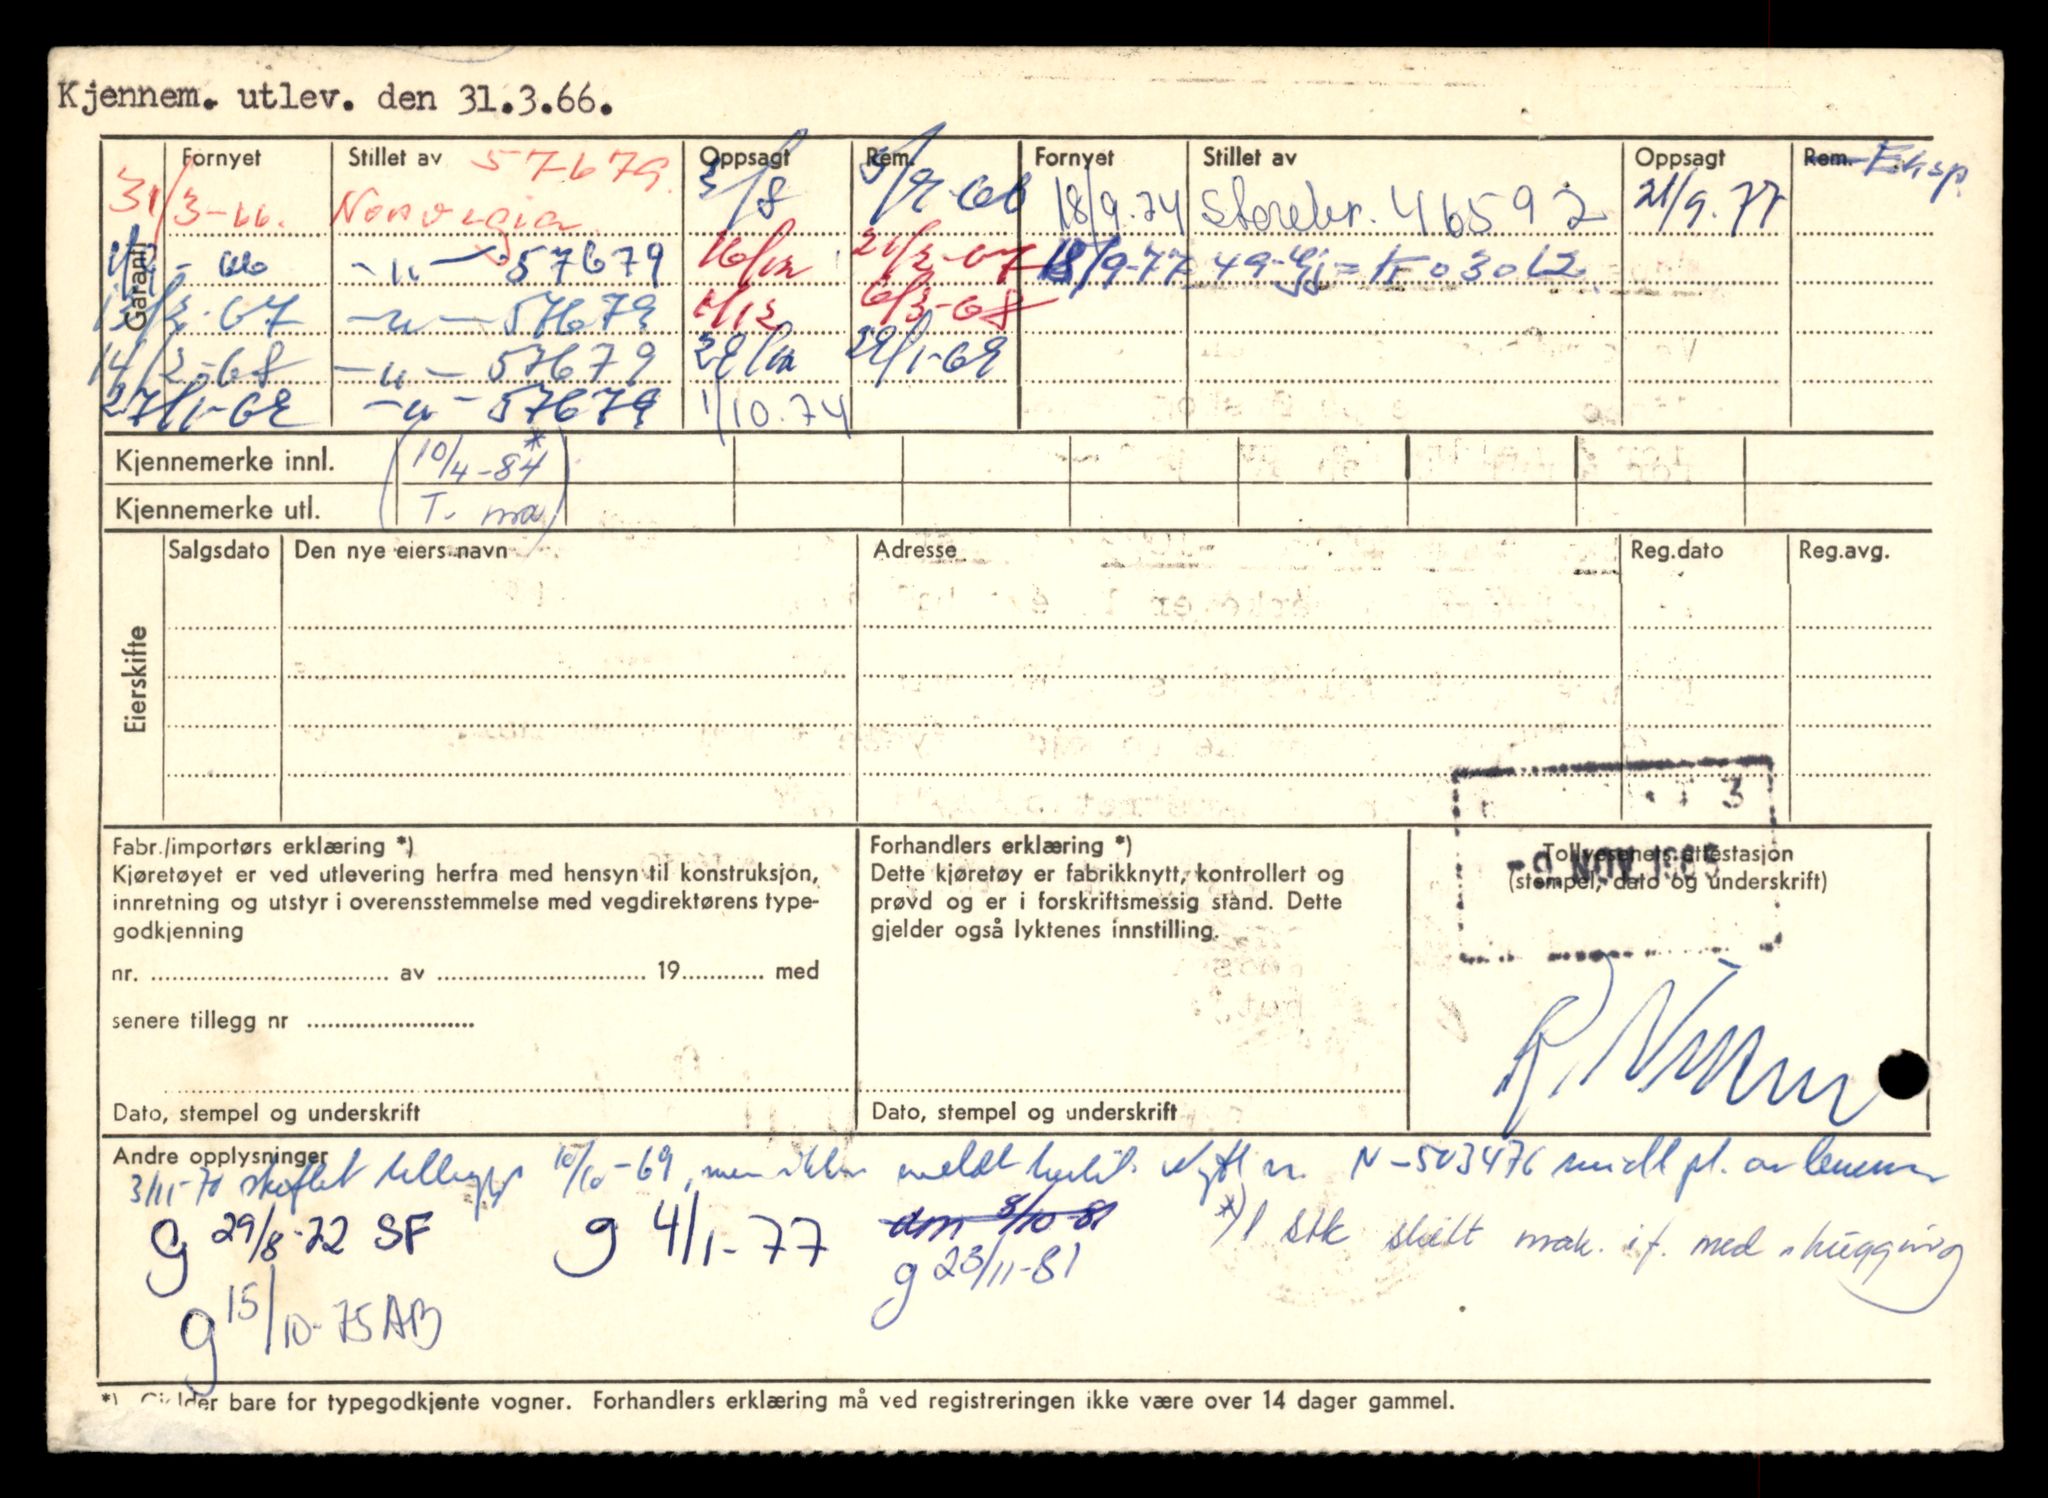 Kjennem. utlev. den 31.3.66.
Garanti
Fornyet Stillet av Oppsagt Rem. Fornyet Stillet av Oppsagt Rem. Eksp.
31/3-66. Norvegia 57679. 3/8 5/9-66 18/9.74 Storebr. 46592 21/9.77
-66 -"- 57679 16/12 21/2-67 18/9-77 49-
13/2-67 -"- 57679 1/12 6/3-68
14/2-68 -"- 57679 28/12 29/1-69
27/1-69 -"- 57679 1/10.74
Kjennemerke innl. (10/4-84*
Kjennemerke utl. T.
Eierskifte
Salgsdato Den nye eiers navn Adresse Reg.dato Reg.avg.
Fabr./importørs erklæring *)
Kjøretøyet er ved utlevering herfra med hensyn til konstruksjon,
innretning og utstyr i overensstemmelse med vegdirektørens type-
godkjenning
nr. av 19 med
senere tillegg nr
Dato, stempel og underskrift
Forhandlers erklæring *)
Dette kjøretøy er fabrikknytt, kontrollert og
prøvd og er i forskriftsmessig stand. Dette
gjelder også lyktenes innstilling.
Dato, stempel og underskrift
Tollvesenets attestasjon
(stempel, dato og underskrift)
3
-9 NOV 1965
Andre opplysninger
3/11-70 skiftet 10/10-69, men ikke meldt hertil. Nytt nr. N-503476 smidt på av
g 29/8-72 SF g 4/1-77 dm 8/10-81 *) 1 stk skilt mak. i f. med hugging
g 23/11-81
g 15/10-75 AB
*) Gjelder bare for typegodkjente vogner. Forhandlers erklæring må ved registreringen ikke være over 14 dager gammel.